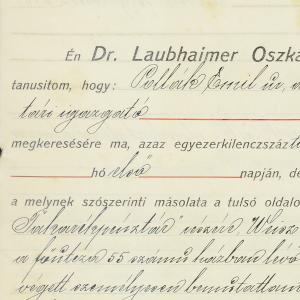 Én Dr. Laubhaimer Oszka
tanusitom, hogy: Pollák Emil ur, a
tári igazgató
megkeresésére ma, azaz egyezerkilenczszázt
hó első napján, dé
a melynek szószerinti másolata a tulsó oldalo
Takarékpénztár" részére, Weisz
a főutcza 55 számu házban lévő
végett személyesen bemutattam